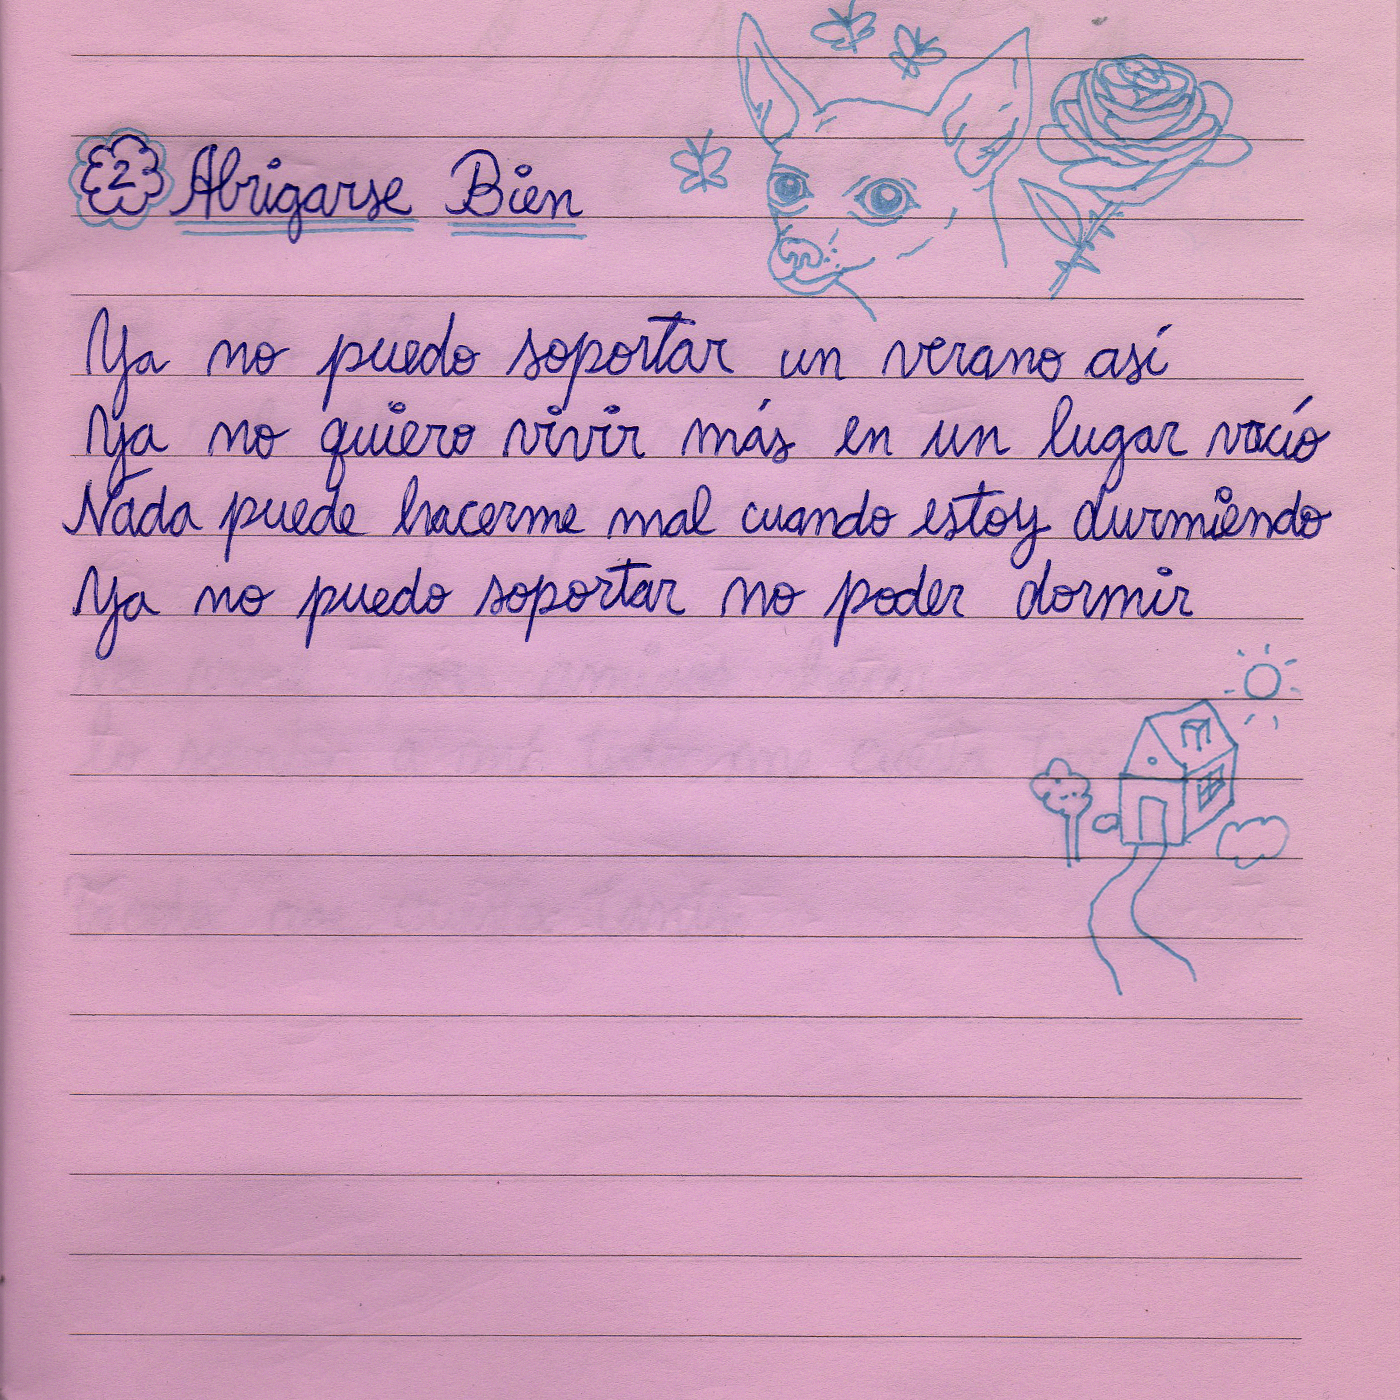 2 Abrigarse Bien
Ya no puedo soportar un verano así
Ya no quiero vivir más en un lugar vacío
Nada puede hacerme mal cuando estoy durmiendo
Ya no puedo soportar no poder dormir